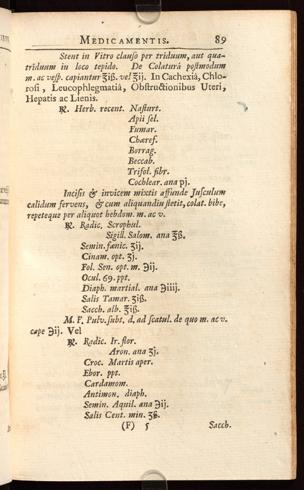 MEDICAMENTIS. 89
Stent in Vitro clauso per triduum, aut qua-
triduum in loco tepido. De Colaturâ postmodum
m. ac vesp. capiantur ʒiß. vel ʒij. In Cachexiâ, Chlo-
rosi, Leucophlegmatiâ, Obstructionibus Uteri,
Hepatis ac Lienis.
℞. Herb. recent. Nasturt.
Apii sel.
Fumar.
Chæref.
Borrag.
Beccab.
Trifol. fibr.
Cochlear. ana pj.
Incisis & invicem mixtis affunde Jusculum
calidum fervens, & cum aliquandiu stetit, colat. bibe,
repeteque per aliquot hebdom. m. ac v.
℞. Radic. Scrophul.
Sigill. Salom. ana ℥ß.
Semin. fœnic. ʒij.
Cinam. opt. ʒj.
Fol. Sen. opt. m. ℈ij.
Ocul. 69. ppt.
Diaph. martial. ana ℈iiij.
Salis Tamar. ʒiß.
Sacch. alb. ℥iß.
M. F. Pulv. subt. d. ad scatul. de quo m. ac v.
cape ℈ij. Vel
℞. Radic. Ir. flor.
Aron. ana ʒj.
Croc. Martis aper.
Ebor. ppt.
Cardamom.
Antimon. diaph.
Semin. Aquil. ana ℈ij.
Salis Cent. min. ʒß.
(F) 5 Sacch.